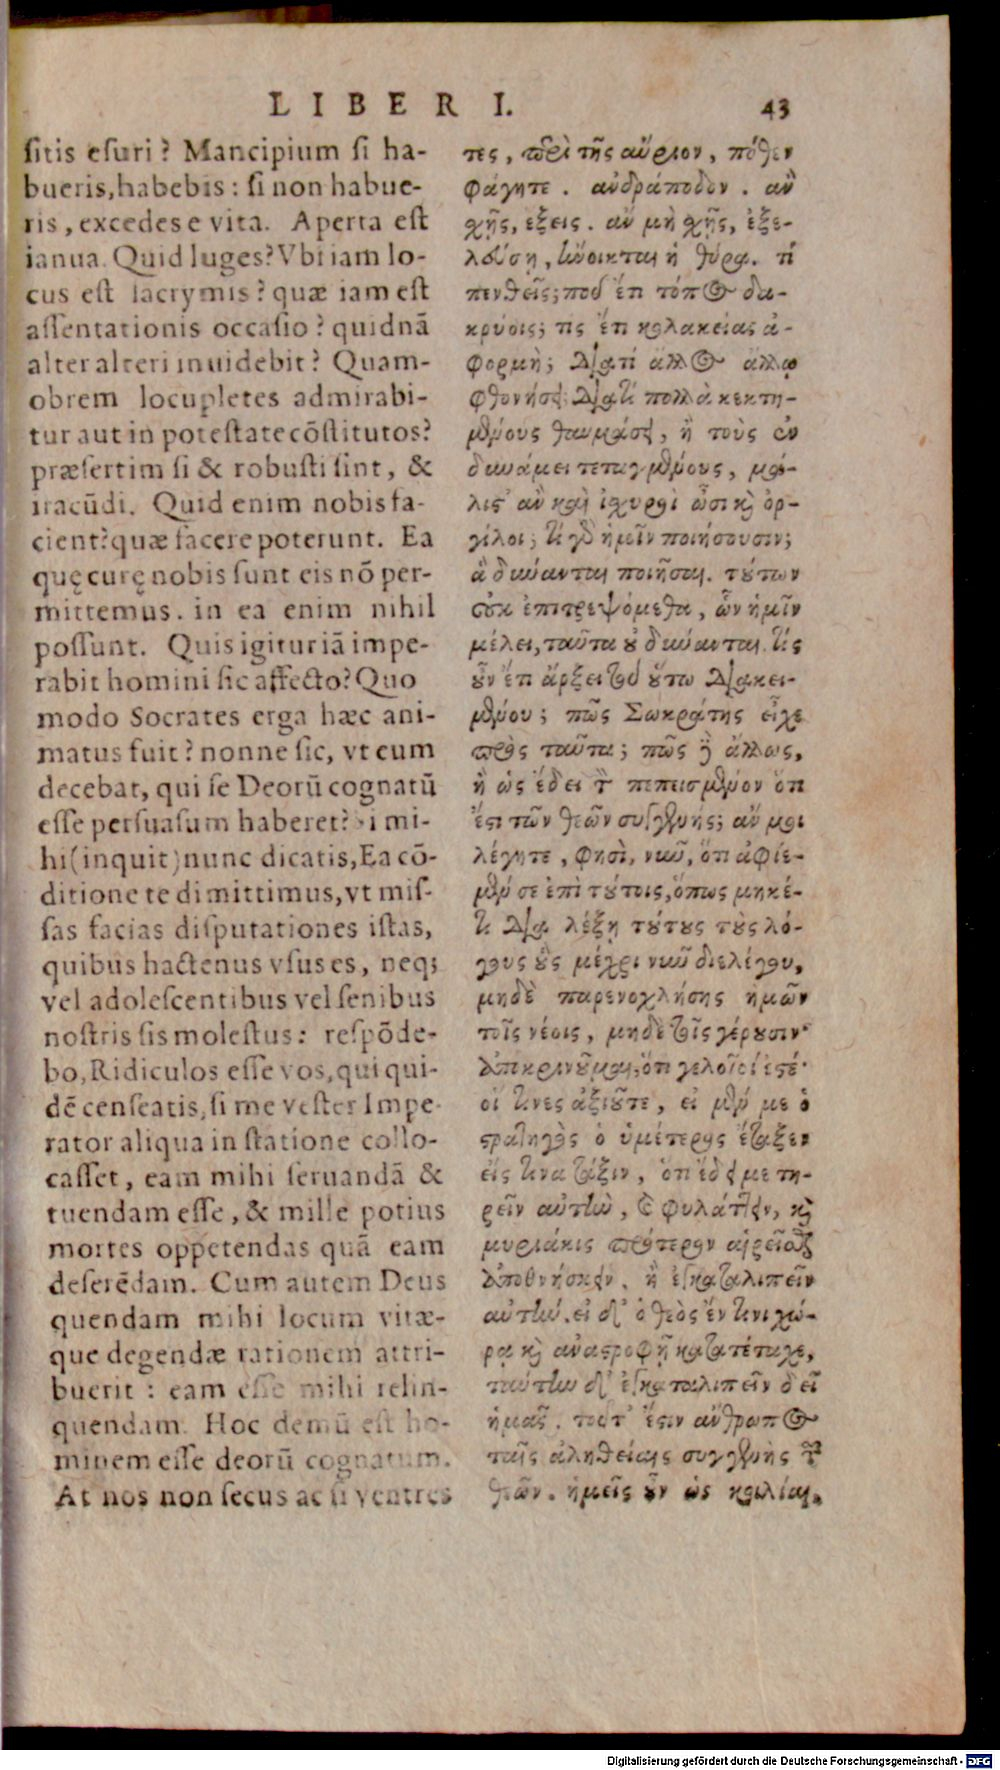 LIBER I. 43
sitis esuri? Mancipium si ha-
bueris, habebis: si non habue-
ris, excedes e vita. Aperta est
ianua. Quid luges? Vbi iam lo-
cus est lacrymis? quæ iam est
assentationis occasio? quidnā
alter alteri inuidebit? Quam-
obrem locupletes admirabi-
tur aut in potestate cōstitutos?
præsertim si & robusti sint, &
iracūdi. Quid enim nobis fa-
cient? quæ facere poterunt. Ea
quę curę nobis sunt eis nō per-
mittemus. in ea enim nihil
possunt. Quis igitur iā impe-
rabit homini sic affecto? Quo
modo Socrates erga hæc ani-
matus fuit? nonne sic, vt eum
decebat, qui se Deorū cognatū
esse persuasum haberet? Si mi-
hi (inquit) nunc dicatis, Ea cō-
ditione te dimittimus, vt mis-
sas facias disputationes istas,
quibus hactenus vsus es, neq;
vel adolescentibus vel senibus
nostris sis molestus: respōde-
bo, Ridiculos esse vos, qui qui-
dē censeatis, si me vester Impe-
rator aliqua in statione collo-
casset, eam mihi seruandā &
tuendam esse, & mille potius
mortes oppetendas quā eam
deserēdam. Cum autem Deus
quendam mihi locum vitæ-
que degendæ rationem attri-
buerit: eam esse mihi relin-
quendam. Hoc demū est ho-
minem esse deorū cognatum.
At nos non secus ac si ventres
τες, περὶ τῆς αὔριον, πόθεν
φάγητε. ἀνδράποδον. ἂν
χῇς, ἕξεις. ἂν μὴ χῇς, ἐξε-
λεύσῃ, ἤνοικται ἡ θύρα. τί
πενθεῖς; ποῦ ἔτι τόπος δα-
κρύοις; τίς ἔτι κολακείας ἀ-
φορμὴ; διατί ἄλλος ἄλλῳ
φθονήσει; διατί πολλὰ κεκτη-
μένους θαυμάσει, ἢ τοὺς ἐν
δυνάμει τεταγμένους, μά-
λιστ' ἂν καὶ ἰσχυροὶ ὦσι καὶ ὀρ-
γίλοι; τί γὰρ ἡμῖν ποιήσουσιν;
ἃ δύνανται ποιῆσαι. τούτων
οὐκ ἐπιτρεψόμεθα, ὧν ἡμῖν
μέλει, ταῦτα οὐ δύνανται. τίς
οὖν ἔτι ἄρξει τοῦ οὕτω διακει-
μένου; πῶς Σωκράτης εἶχε
πρὸς ταῦτα; πῶς γὰρ ἄλλως,
ἢ ὡς ἔδει τὸν πεπεισμένον ὅτι
ἔστι τῶν θεῶν συγγενής; ἄν μοι
λέγητε, φησὶ, νῦν, ὅτι ἀφίε-
μέν σε ἐπὶ τούτοις, ὅπως μηκέ-
τι διαλέξῃ τούτους τοὺς λό-
γους οὓς μέχρι νῦν διελέγου,
μηδὲ παρενοχλήσῃς ἡμῶν
τοῖς νέοις, μηδὲ τοῖς γέρουσιν·
ἀποκρινοῦμαι, ὅτι γελοῖοί ἐστέ·
οἵ τινες ἀξιοῦτε, εἰ μέν με ὁ
στρατηγὸς ὁ ὑμέτερος ἔταξεν
εἴς τινα τάξιν, ὅτι ἔδει με τη-
ρεῖν αὐτὴν, καὶ φυλάττειν, καὶ
μυριάκις πρότερον αἱρεῖσθαι
ἀποθνήσκειν, ἢ ἐγκαταλιπεῖν
αὐτήν. εἰ δ' ὁ θεὸς ἔν τινι χώ-
ρᾳ καὶ ἀναστροφῇ κατατέταχε,
ταύτην δ' ἐγκαταλιπεῖν δεῖ
ἡμᾶς. τοῦτ' ἔστιν ἄνθρωπος
ταῖς ἀληθείαις συγγενὴς τῶν
θεῶν. ἡμεῖς οὖν ὡς κοιλίαι,
Digitalisierung gefördert durch die Deutsche Forschungsgemeinschaft - DFG